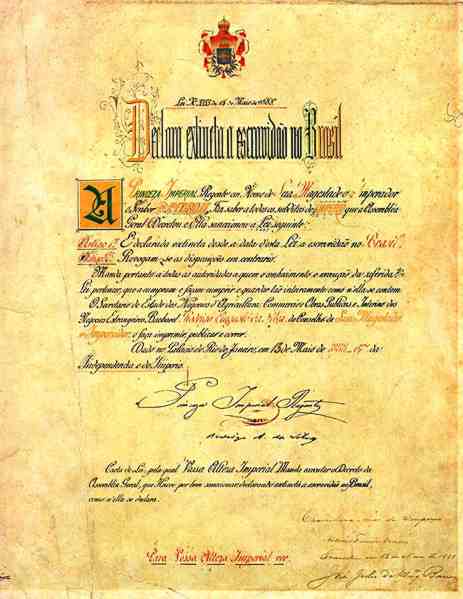 Lei Nº 3353 de 13 de Maio de 1888.
Declara extincta a escravidão no Brasil
A PRINCEZA IMPERIAL Regente em Nome de Sua Magestade o Imperador
o Senhor D. PEDRO II, Faz saber a todos os subditos do IMPERIO que a Assembléa
Geral Decretou e Ella sanccionou a Lei seguinte:
Artigo 1º É declarada extincta desde a data d'esta Lei a escravidão no Brazil.
Artigo 2º Revogam-se as disposições em contrario.
Manda portanto a todas as autoridades a quem o conhecimento e execução da referida
Lei pertencer, que a cumpram e façam cumprir e guardar tão inteiramente como n'ella se contém.
O Secretario de Estado dos Negocios d'Agricultura, Commercio e Obras Publicas e Interino dos
Negocios Estrangeiros, Bacharel Rodrigo Augusto da Silva do Conselho de Sua Magestade
o Imperador, o faça imprimir, publicar e correr.
Dado no Palacio do Rio de Janeiro, em 13 de Maio de 1888, 67º da
Independencia e do Imperio.
Princeza Imperial Regente
Rodrigo A. da Silva
Carta de Lei, pela qual Vossa Alteza Imperial Manda executar o Decreto da
Assembléa Geral, que Houve por bem sanccionar, declarando extincta a escravidão no Brazil,
como n'ella se declara.
Para Vossa Alteza Imperial ver.